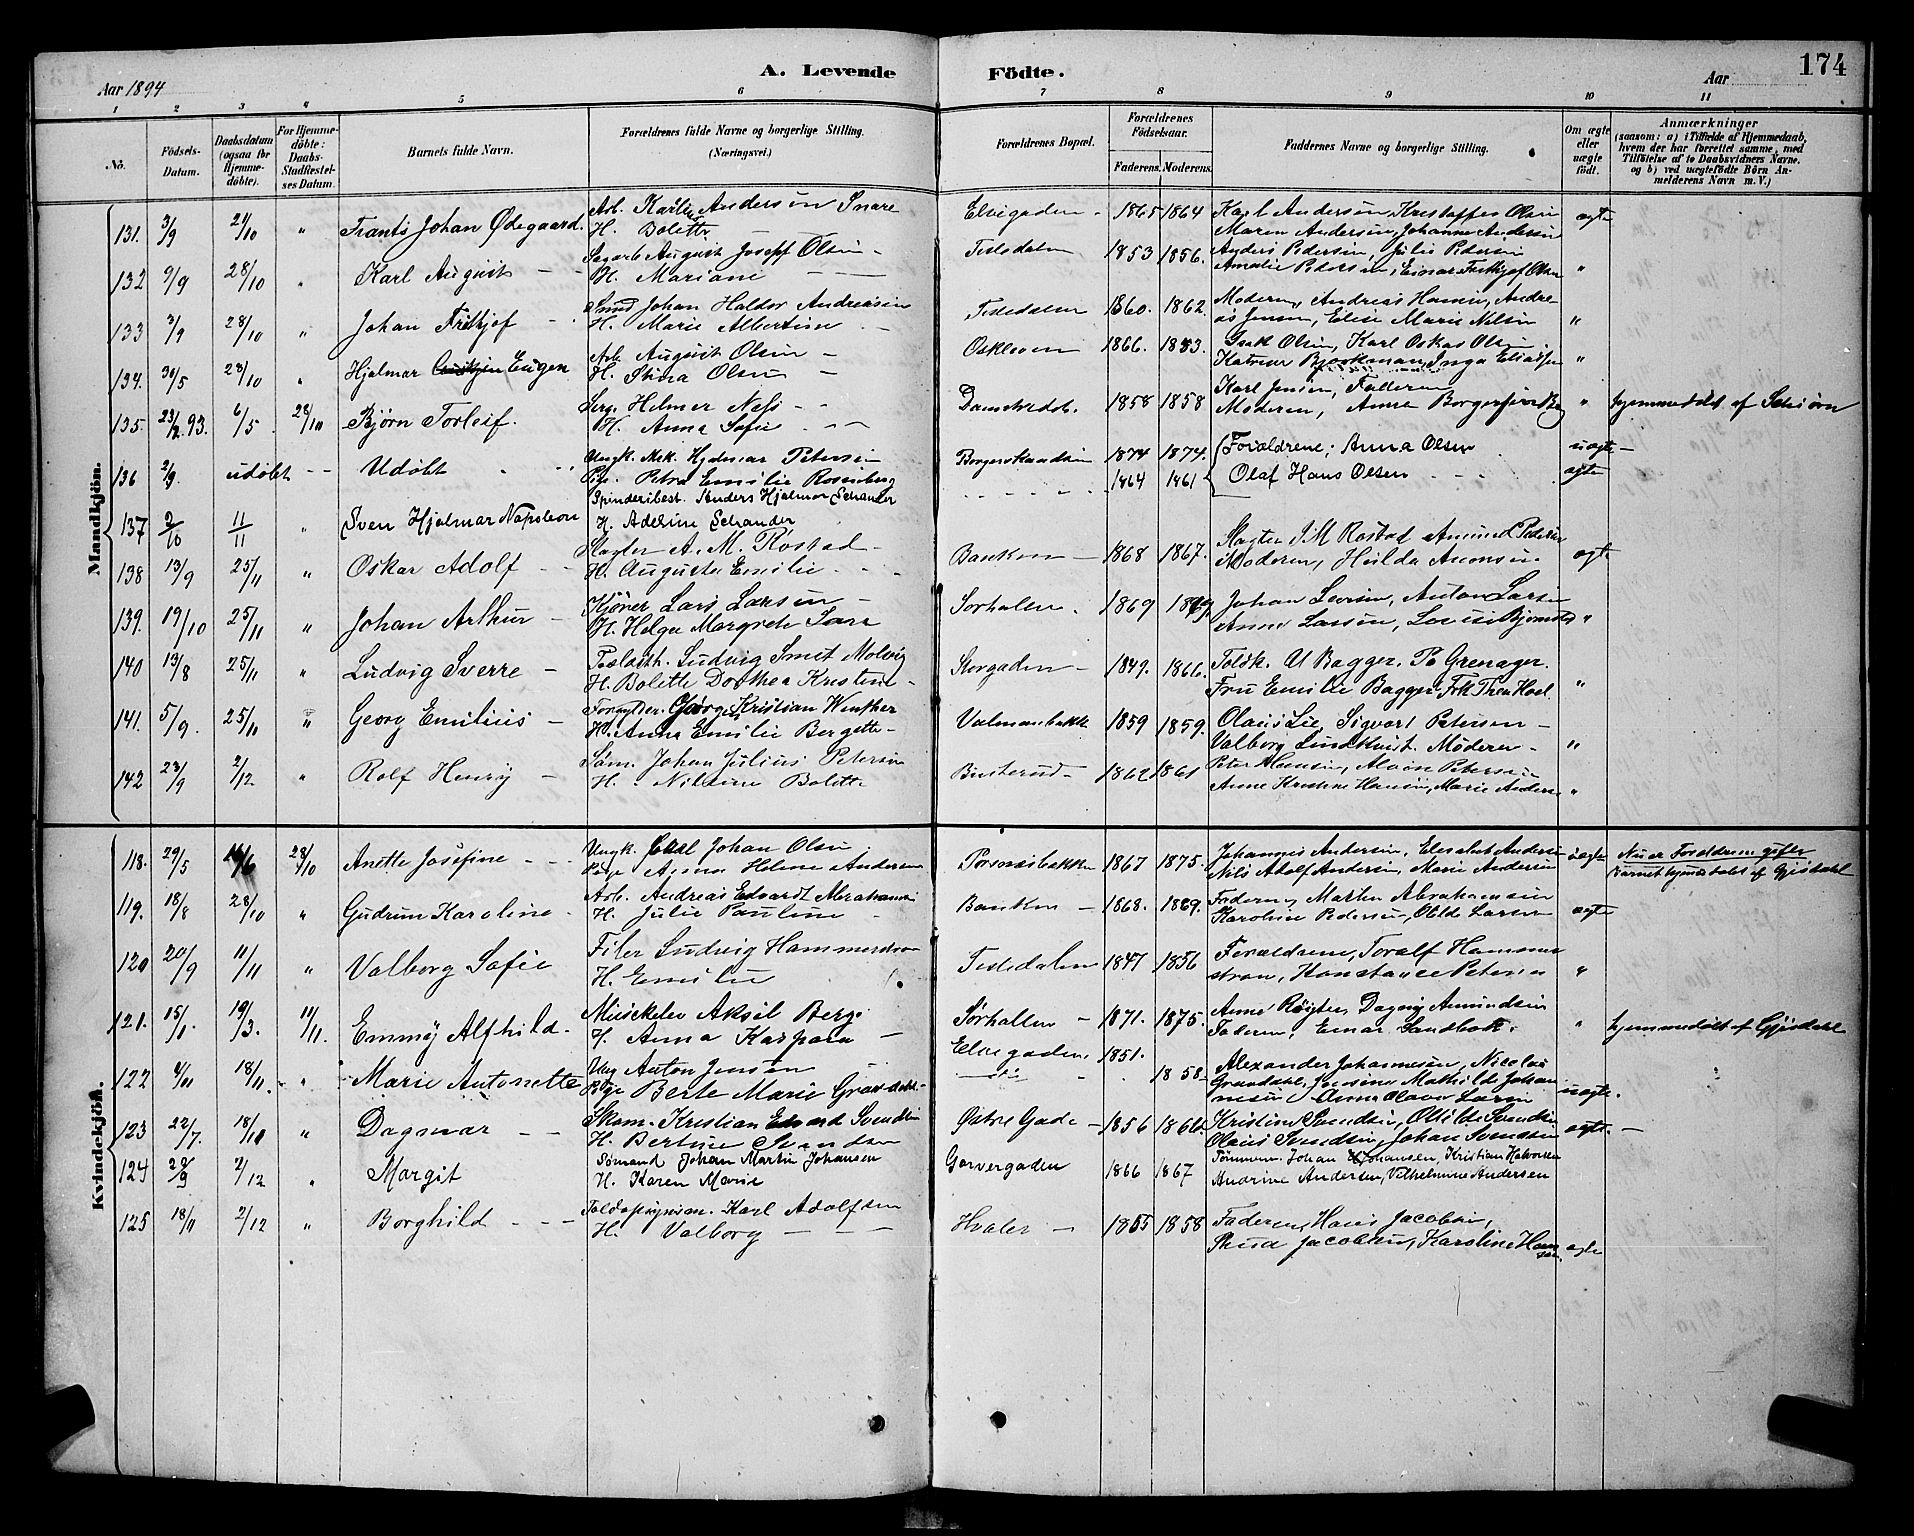 A. Levende Födte.
174
Aar 1894
Aar
1 2 3 4 5 6 7 8 9 10 11
No.
Födsels-Datum.
Daabsdatum (ogsaa for Hjemme-döbte).
For Hjemme-döbte: Daabs-Stadfæstel-ses Datum.
Barnets fulde Navn.
Forældrenes fulde Navne og borgerlige Stilling. (Næringsvei.)
Forældrenes Bopæl.
Forældrenes Födselsaar.
Faderens. Moderens.
Faddernes Navne og borgerlige Stilling.
Om ægte eller uægte födt.
Anmærkninger (saasom: a) i Tilfælde af Hjemmedaab, hvem der har forrettet samme, med Tilföielse af to Daabsvidners Navne. og b) ved uægtefödte Börn An-melderens Navn m. V.)
Mandkjön.
131. 3/9 21/10 " Frants Johan Ødegaard. Arb. Andersen Snare
H. Bolette Elvegaden - 1865 1864 Karl Andersen, Kristoffer Olsen
Maren Andersen, Johanne Andersen ægte
132 9/9 28/10 " Karl August - - August Josef Olsen -
H. Mariane - Tistedalen 1853 1856. Anders Pedersen, Julie Pedersen
Amalie Pedersen, Einar Fritkjof Olsen "
133 3/9 28/10 " Johan Fritkjof - Smed Johan Haldor Andreasen
H. Marie Albertine - Tistedalen 1860. 1862. Moderen, Andreas Hansen, Andre-
as Jensen, Elise Marie Nilsen "
134. 30/5 28/10 " Hjalmar Eugen Arb. August Olsen -
H. Stina Olsen - 1866. 1883. Isak Olsen, Karl Oskar Olsen.
Katrine Bjorkman, Inga Eliassen "
135. 23/2.93. 6/5 28/10 Bjørn Torleif. Serg. Helmer Næss - -
H. Anna Sofie - Damstrædet. 1858 1858 Karl Jensen, Faderen
Moderen, Anna Borgersen " hjemmedøbt af
136 2/9 udøbt - - Udøbt Ungk. Mek. Hjalmar Petersen
Pige. Petra Emilie Rosenberg 1874 1874. uægte -
137 2/10 11/11 " Sven Hjalmar Napoleon Spinderibest. Anders Hjalmar Schander
H. Adeline Schander 1864 1861 Forældrene; Anna Olsen
Olaf Hans Olsen ægte
138 13/9 25/11 " Oskar Adolf - - Slagter A. M. Røstad -
H. Augusta Emilie - Banken - 1868 1867. Slagter J. M Røstad Amund Pedersen
Moderen, Hilda Amonsen ægte
139. 19/10 25/11 " Johan Arthur - Kjører Lars Larsen -
H. Helga Margrete Sara Sørhalen. 1869 Johan Larsen, Anton Larsen
Anne Larsen, Lovise "
140 13/8 25/11 " Ludvig Sverre - Ludvig Smit Molvig
H. Bolette Dorthea Kristine - Storgaden - 1849. 1866. Toldk. U Bagger. Po Grenager.
Fru Emilie Bagger, Frk Thea Hoel "
141. 5/9. 25/11 " Georg Emilius - Forgylder. Georg Kristian Winther
H. Anna Emilie Bergette - 1859 1859. Olaus Lie, Sigvart Petersen -
Valborg Lindkvist. Moderen - "
142 23/9 2/12 " Rolf Henry - Søm. Johan Julius Petersen
H. Nilsine Bolette - 1862 1861 Peter Hansen,
Anne Kristine Hansen, Marie Andersen "
Kvindekjön.
118. 29/5 28/10 Anette Josefine - - - Ungk. Karl Johan Olsen
Pige Agnes Helene Andersen 1867 1875. Johannes Andersen, Elisabet Andersen
Nils Adolf Andersen, Marie Andersen uægte Nu er Forældrene gifte
Barnet hjemmedøbt af Gjisdahl
119. 18/8 28/10 " Gudrun Karoline - Arb. Andreas Edvardt Abrahamsen
H. Julie Pauline - Banken - 1868. 1869. Faderen, Martin Abrahamsen
Karoline Pedersen, Larsen ægte
120 20/9 11/11 " Valborg Sofie Filer Ludvig Hammerstrøm
H. Emilie Tistedalen 1847 1856 Forældrene, Toralf Hammer-
strøm, Konstance Petersen "
121. 15/1. 19/3. 11/11. Emmy Alfhild. Aksel Berg
H. Anna Kaspara - Sørhallen - 1871. 1875. Anne Dagny Amundsen
Faderen, Einar Sandbæk. " hjemmedøbt af Gjisdahl
122 4/11 18/11. - " - Marie Antonette Ung Anton Jensen -
Pige Berte Marie Grandahl - Elvegaden. 1851. 1858. Alexander Johannesen, Nicolai
Grandahl, Josefine Mathilde Johan-
nesen, Anna Olava Larsen uægte.
123 22/7. 18/11 " Dagmar - - Skom. Kristian Edvard Svendsen
H. Bertine Svendsen Østre Gade - 1856 1866. Kristine Svendsen, Otilde Svendsen
Olaus Svendsen, Johan Svendsen ægte. -
124 29/9 2/12 " Margit Sømand Johan Martin Johansen
H. Karen Marie Garvergaden 1866 1867 Tømmerm. Johan Johansen, Kristian Halvorsen
Andrine Andersen, Vilhelmine Andersen
125 18/11 2/12 " Borghild - - - Karl Adolfsen
H. Valborg - - Hvaler - 1855 1858 Faderen, Hans Jacobsen,
Thea Jacobsen, Karoline Han-
sen. ægte